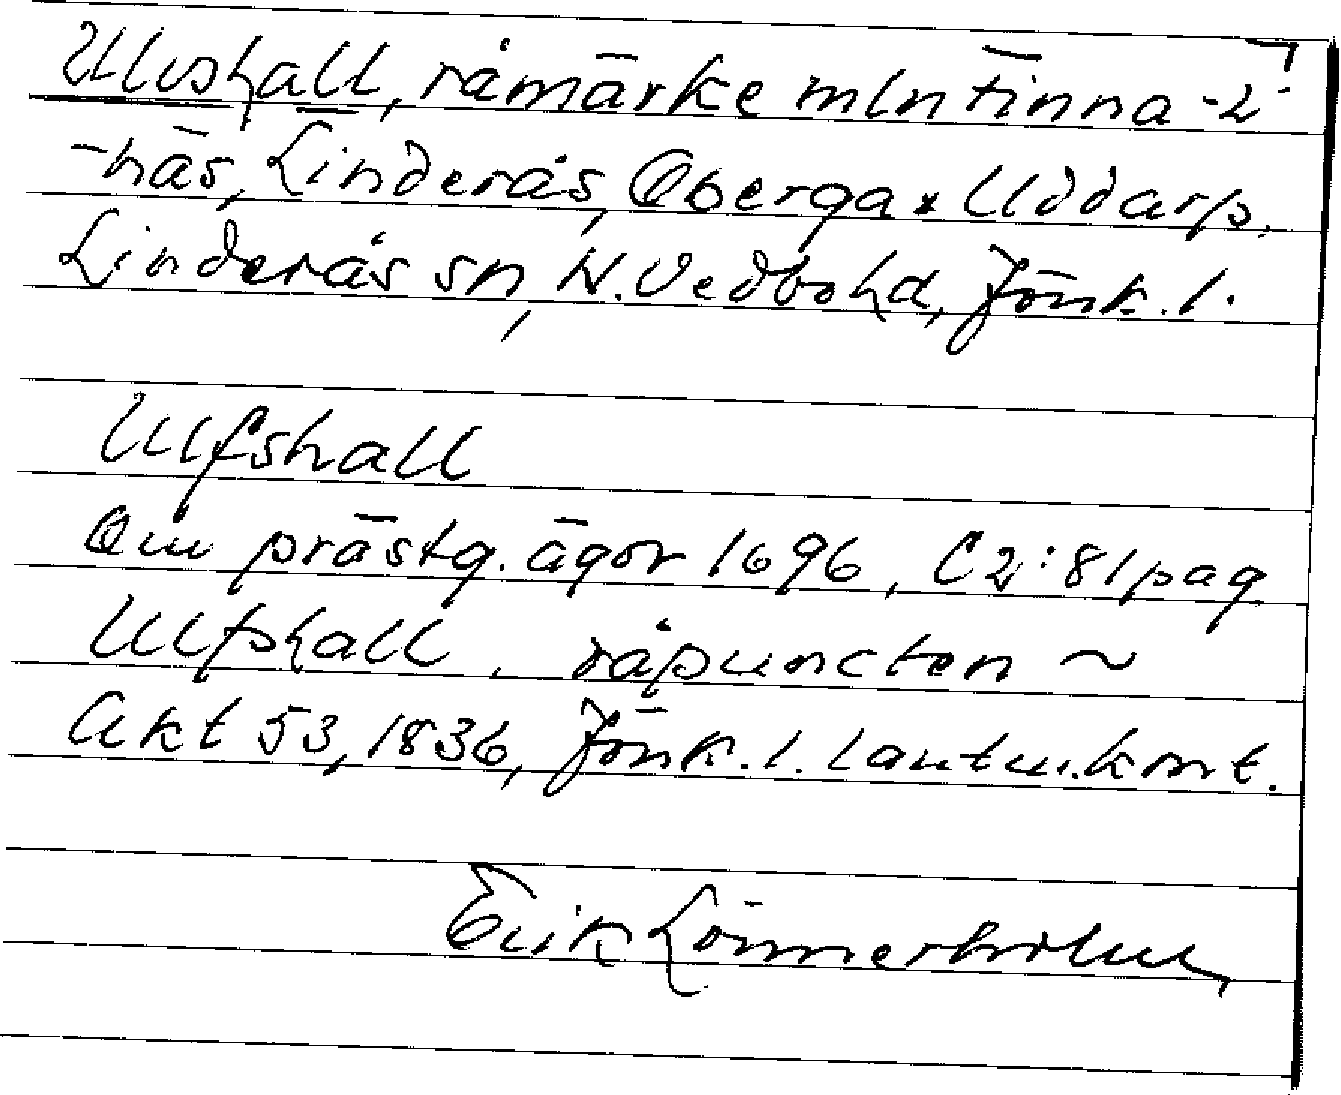 Ulvshall, råmärke mln Finna-
-näs, Linderås, Oberga x Uddarp,
Linderås sn, N. Vedbohd, Jönk. l.
Ulfshall
Om prästg. ägor 1696, C2:81 pag
Ulfshall, råpuncten ~
Akt 53, 1836, Jönk. l. lantm.kont.
Erik Lönnerholm